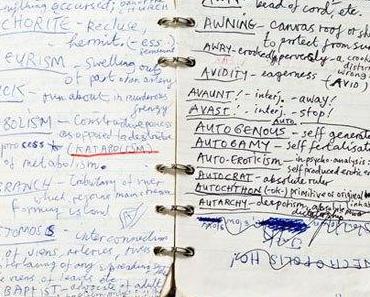 anything occured,
CHORITE - Recluse
hermit. (-ESS)
EURISM - Swelling out
of part of an artery
CK - run about in murderous
frenzy
BOLISM - Constructive process
as opposed to destructive
process (KATABOLISM)
of metabolism.
BRANCH - tributary of river
which rejoins main stream
forming island
TOMOSIS - interconnection
of veins, arteries, rivers
BAPTIST - advocate of adult
bead of cord, etc.
AWNING - Canvas roof or sh
to protect from sun
AWRY - crookedly, perversely - a. crooked
distor
wrong
AVIDITY - eagerness (AVID)
AVAUNT! - interj. - away!
AVAST! - interj. - stop!
Auto.
AUTOGENOUS - self generate
AUTOGAMY - self fertilisatio
AUTO-EROTICISM - in psycho-analysis:
self produced erotic e
AUTOCRAT - absolute ruler
AUTOCHTHON (-OK-) primitive or original
inhab
AUTARCHY - despotism, absolute power
dictatorship
NECROPOLIS HO